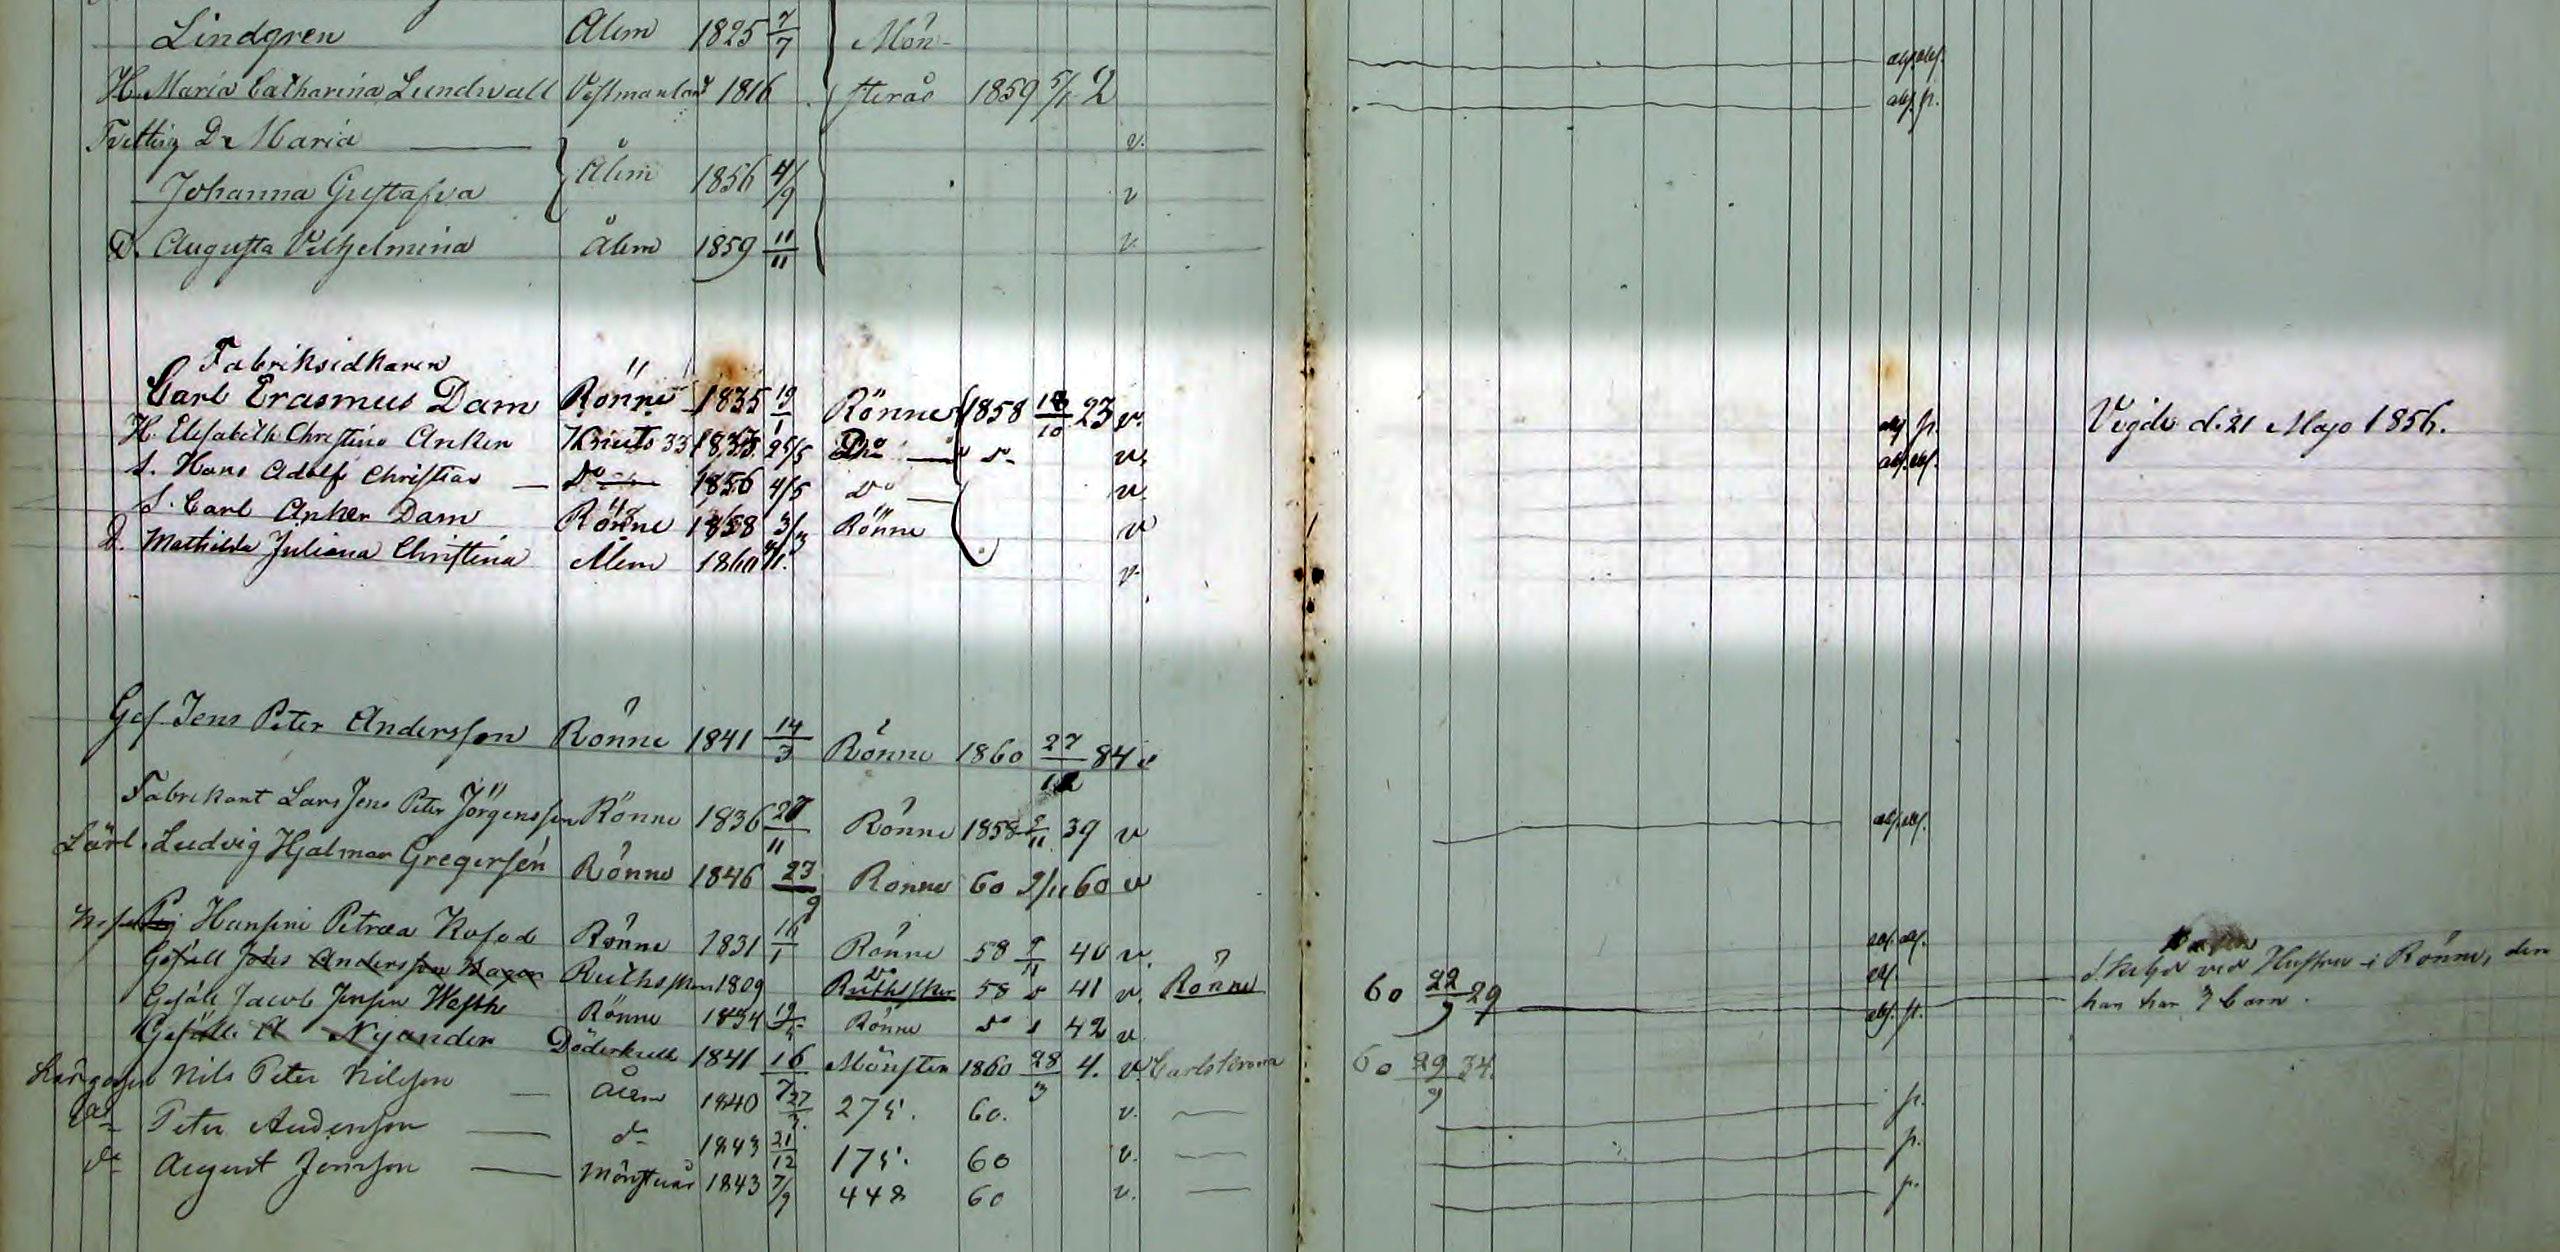 Lindgren Ålem 1825 7/7 Mön-
H. Maria Catharina Lundwall Vestmanland 1816 sterås 1859 5/1 2
Tvilling D. Maria v.
Johanna Gustafva Ålem 1856 4/9 v
D. Augusta Vilhelmina Ålem 1859 11/11 v.
Fabriksidkaren
Carl Erasmus Dam Rönne 1835 19/1 Rönne 1858 18/10 23 v. Vigde d. 21 Majo 1856.
H. Elisabeth Christina Anker 33 25/5 Do v.
S. Hans Adolf Christian Do 1856 4/5 Do v.
S. Carl Anker Dam Rönne 1858 3/3 Rönne v
D. Mathilda Juliana Christina Ålem 1860 v.
Ges Jens Peter Andersson Rönne 1841 14/3 Rönne 1860 27/12 84 v
Fabrikant Lars Jens Peter Jörgenssen Rönne 1836 27/11 Rönne 1858 5/11 39 v
Lärl. Ludvig Hjalmar Gregersén Rönne 1846 23/9 Rönne 60 9/11 60 v
Hansine Petræa Kofod Rönne 1831 16/1 Rönne 58 9/11 40 v.
Gesäll Jöns Andersson Ruthsker 1809 Ruthsker 58 41 v. Rönne 60 22/9 29 Hustru i Rönne, den
Gesäll Jacob Jensen Wefth Rönne 1834 Rönne do 42 v han har 3 barn.
Gesäll A Nyander Döderhult 1841 16/7 Mönster 1860 28/3 4. v. Carlskrona 60 29/9 34.
Nils Peter Nilsson Ålem 1840 27 275. 60. v. p.
do Peter Anderson do 1843 21/12 175. 60 v. p.
do August Jonsson Mönsterås 1843 7/9 448 60 v. p.